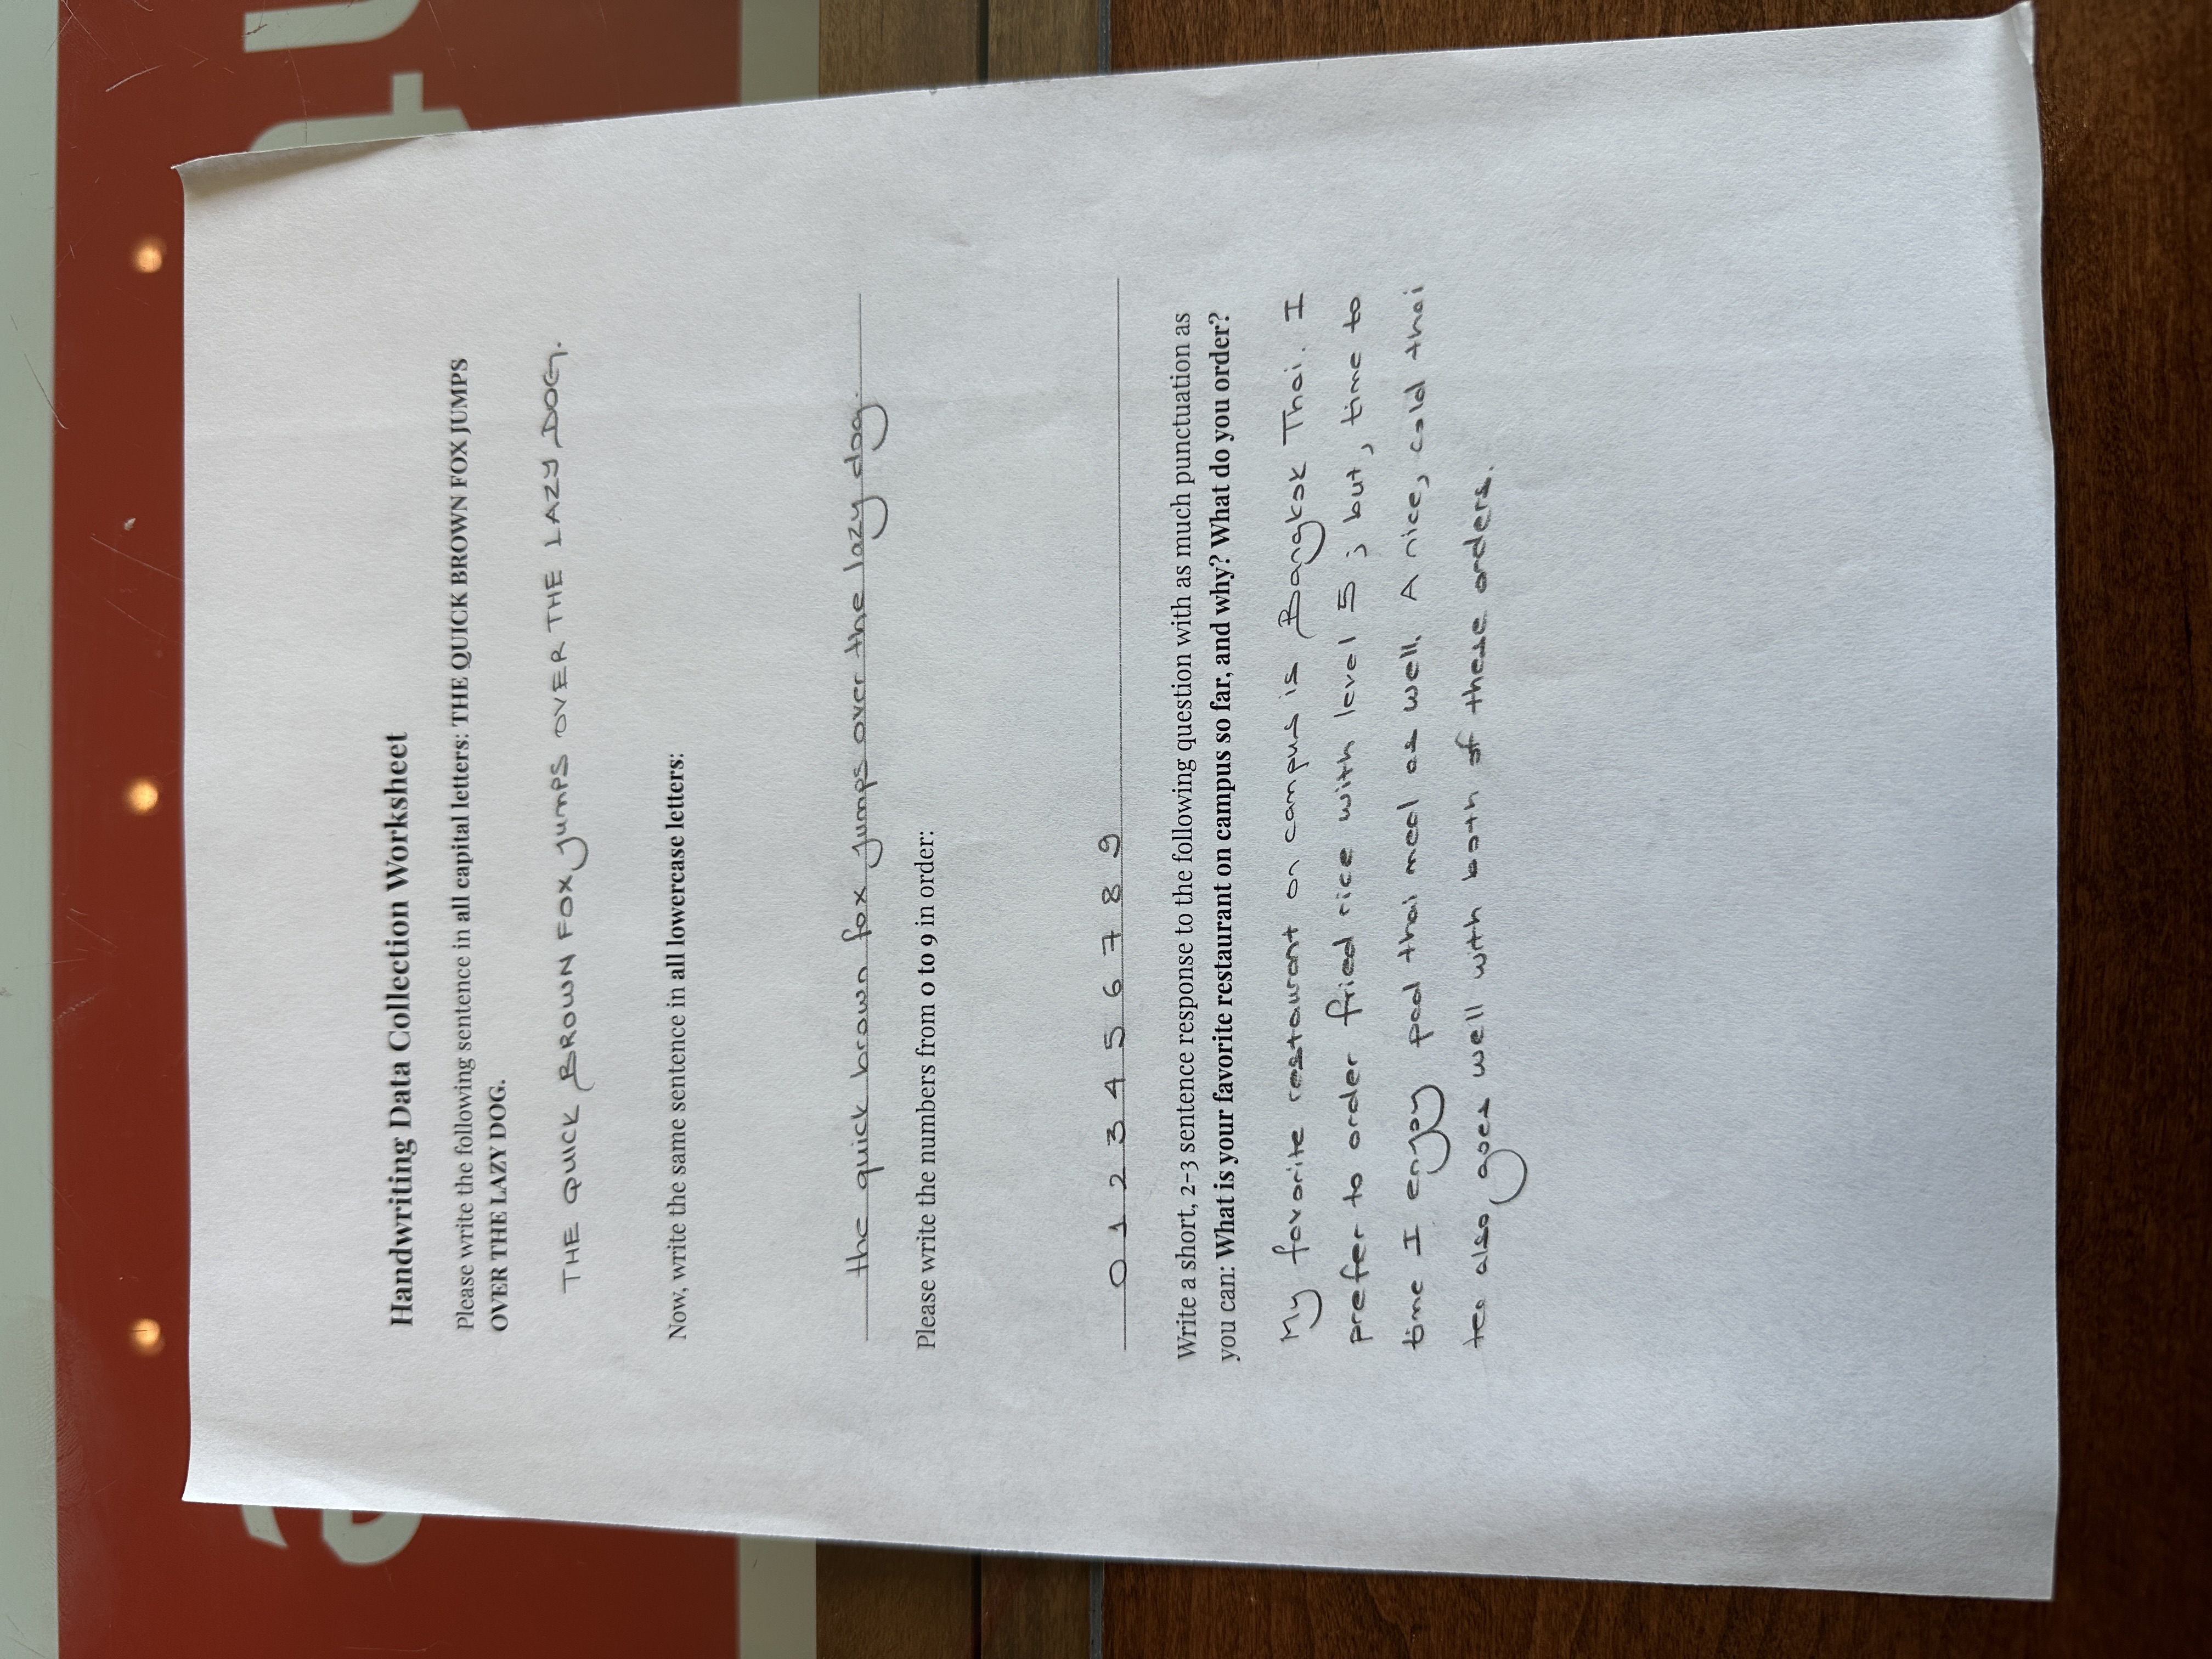 Handwriting Data Collection Worksheet
Please write the following sentence in all capital letters: THE QUICK BROWN FOX JUMPS
OVER THE LAZY DOG.
THE QUICK BROWN FOX JUMPS OVER THE LAZY DOG.
Now, write the same sentence in all lowercase letters:
the quick brown fox jumps over the lazy dog.
Please write the numbers from 0 to 9 in order:
0 1 2 3 4 5 6 7 8 9
Write a short, 2-3 sentence response to the following question with as much punctuation as
you can: What is your favorite restaurant on campus so far, and why? What do you order?
My favorite restaurant on campus is Bangkok Thai. I
prefer to order fried rice with level 5 ; but, time to
time I enjoy pad thai meal as well. A nice, cold thai
tea also goes well with both of these orders.